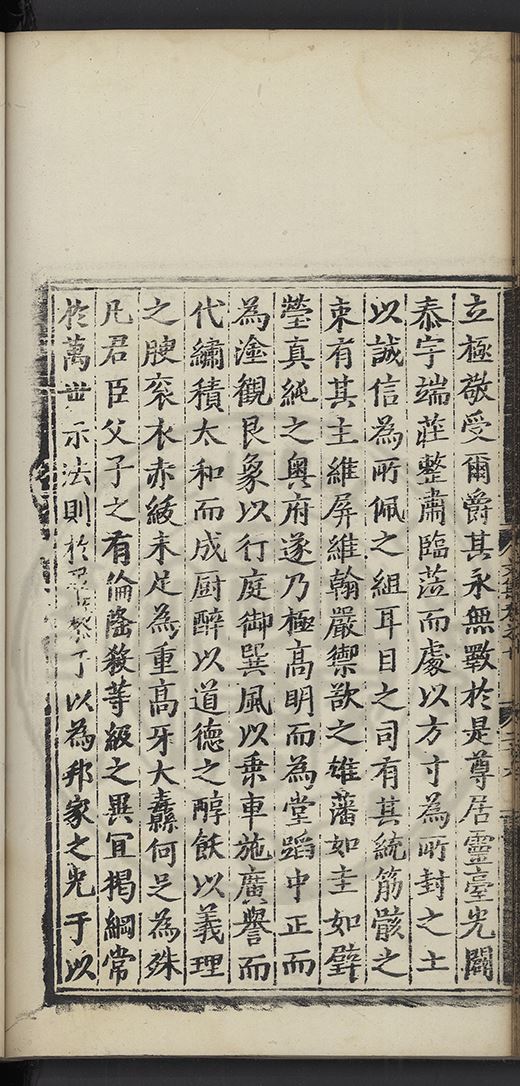 立極敬受爾爵其永無斁於是尊居靈臺光闢
泰宇端莊整肅臨蒞而處以方寸為所封之土
以誠信為所佩之組耳目之司有其統筋骸之
束有其主維屏維翰嚴禦欲之雄藩如圭如璧
瑩真純之奧府遂乃極高明而為堂蹈中正而
為塗觀艮象以行庭御巽風以乗車施廣譽而
代繡積太和而成厨醉以道德之醇飫以義理
之腴衮衣赤紱未足為重高牙大纛何足為殊
凡君臣父子之有倫隆殺等級之異宜揭綱常
於萬世示法則於黎丁以為邦家之光于以